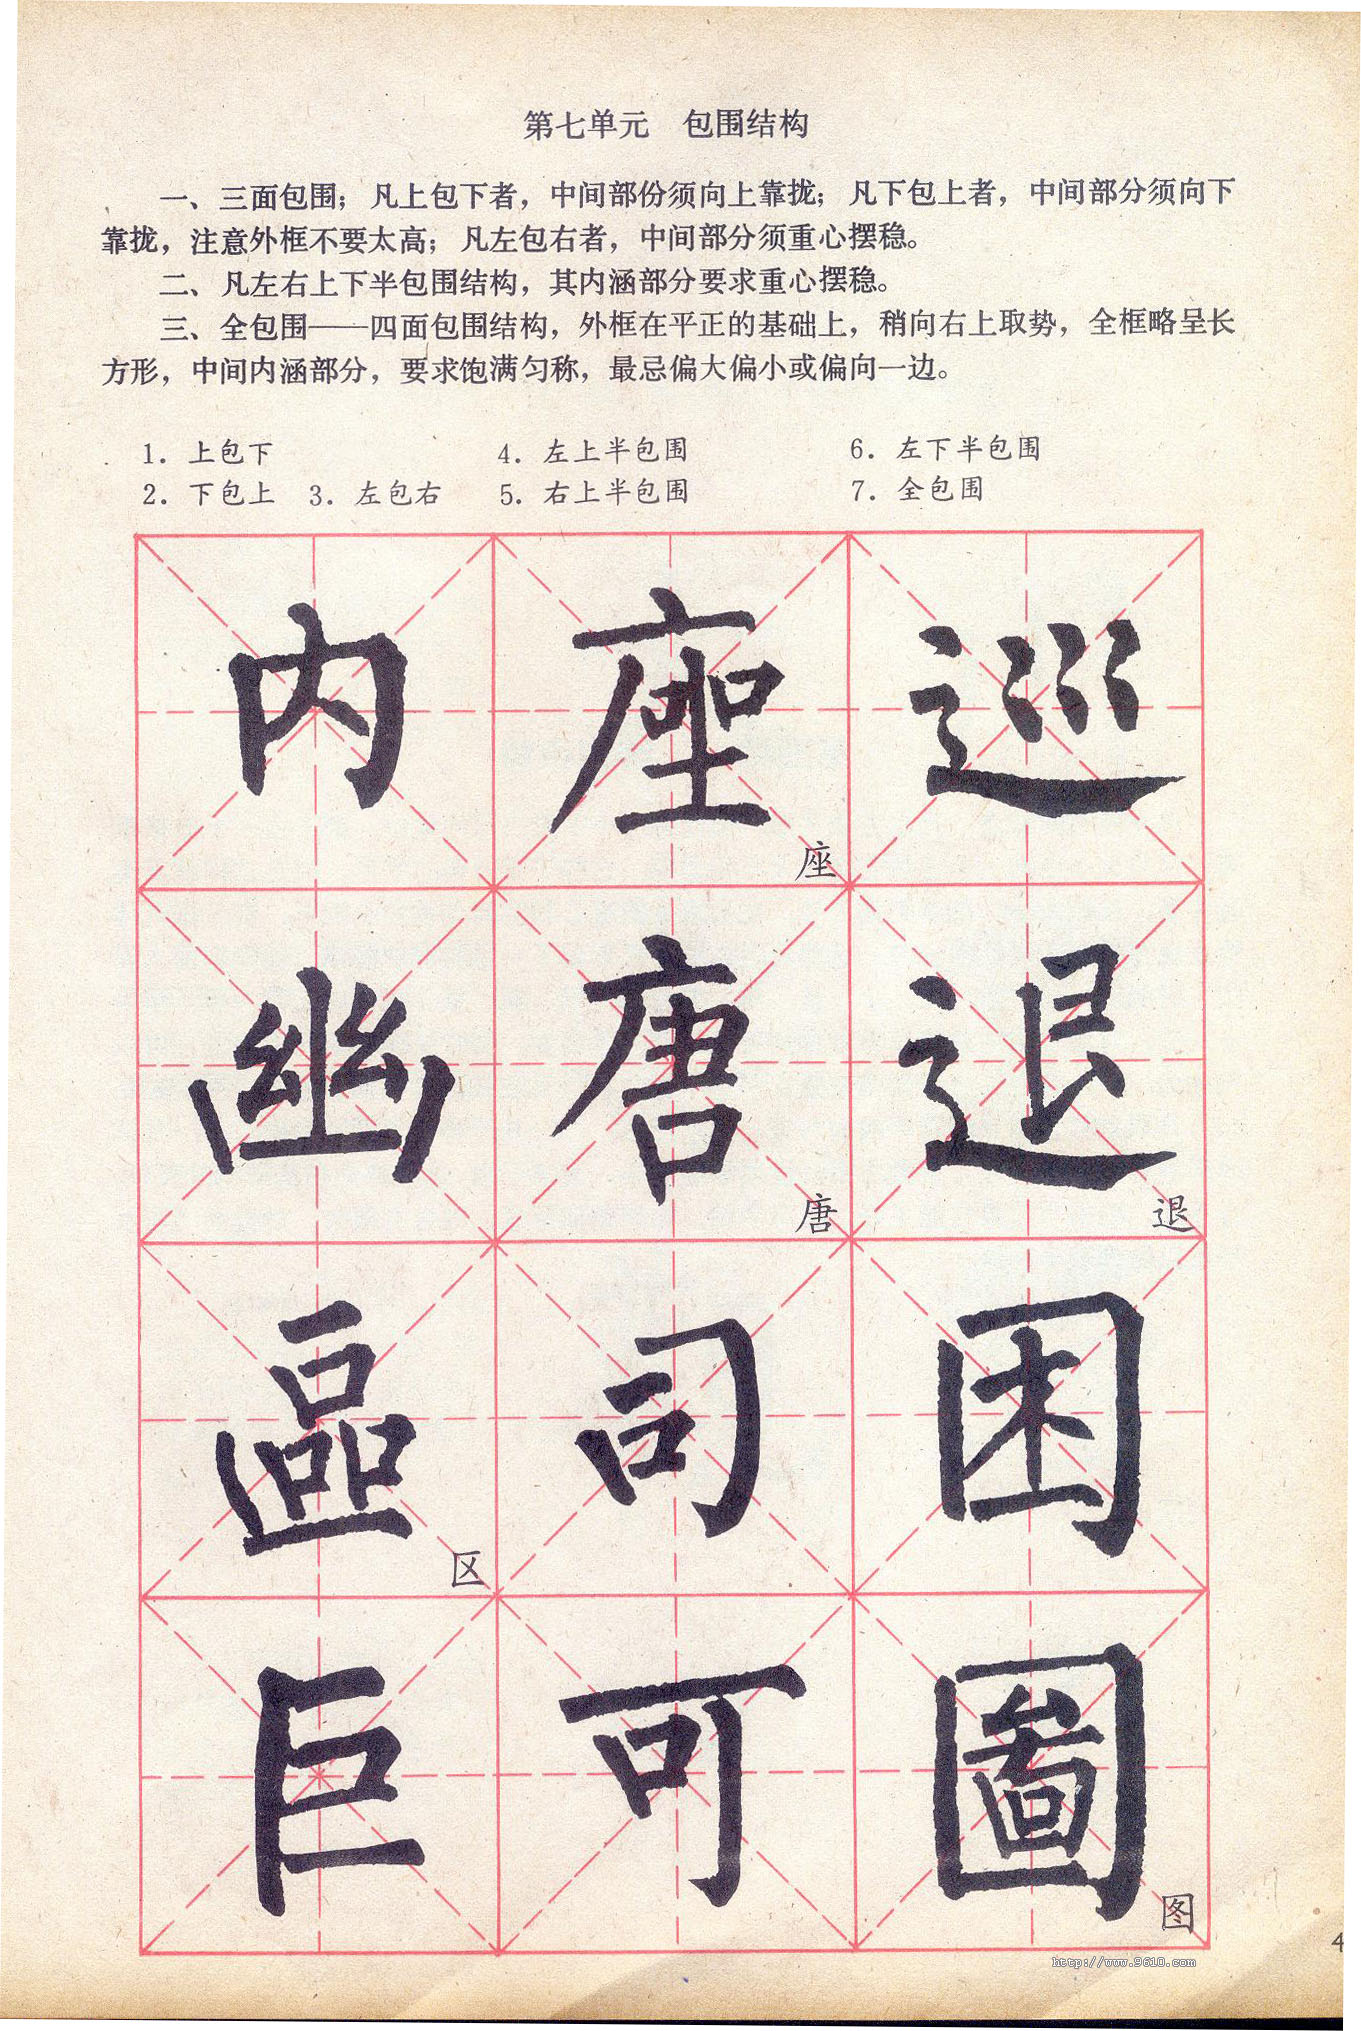 第七单元　包围结构
一、三面包围；凡上包下者，中间部份须向上靠拢；凡下包上者，中间部分须向下
靠拢，注意外框不要太高；凡左包右者，中间部分须重心摆稳。
二、凡左右上下半包围结构，其内涵部分要求重心摆稳。
三、全包围——四面包围结构，外框在平正的基础上，稍向右上取势，全框略呈长
方形，中间内涵部分，要求饱满匀称，最忌偏大偏小或偏向一边。
1．上包下　4．左上半包围　6．左下半包围
2．下包上　3．左包右　5．右上半包围　7．全包围
内　座　巡
座
幽　唐　退
唐　退
區　司　困
区
巨　可　圖
图
4
http://www.9610.com